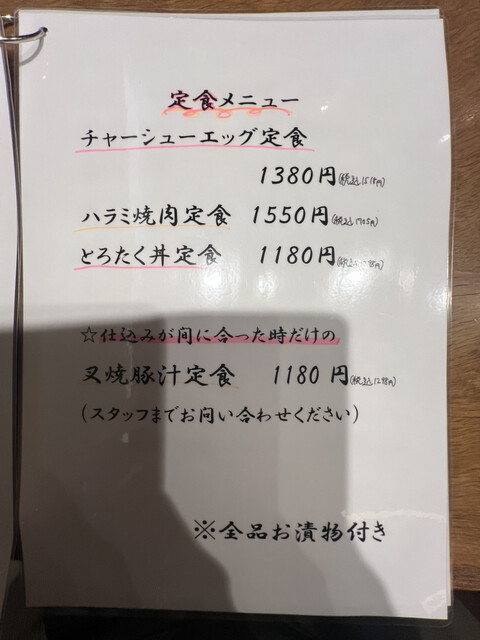 定食メニュー
チャーシューエッグ定食
1380円(税込1518円)
ハラミ焼肉定食 1550円(税込1705円)
とろたく丼定食 1180円(税込1298円)
☆仕込みが間に合った時だけの
叉焼豚汁定食 1180円(税込1298円)
(スタッフまでお問い合わせください)
※全品お漬物付き